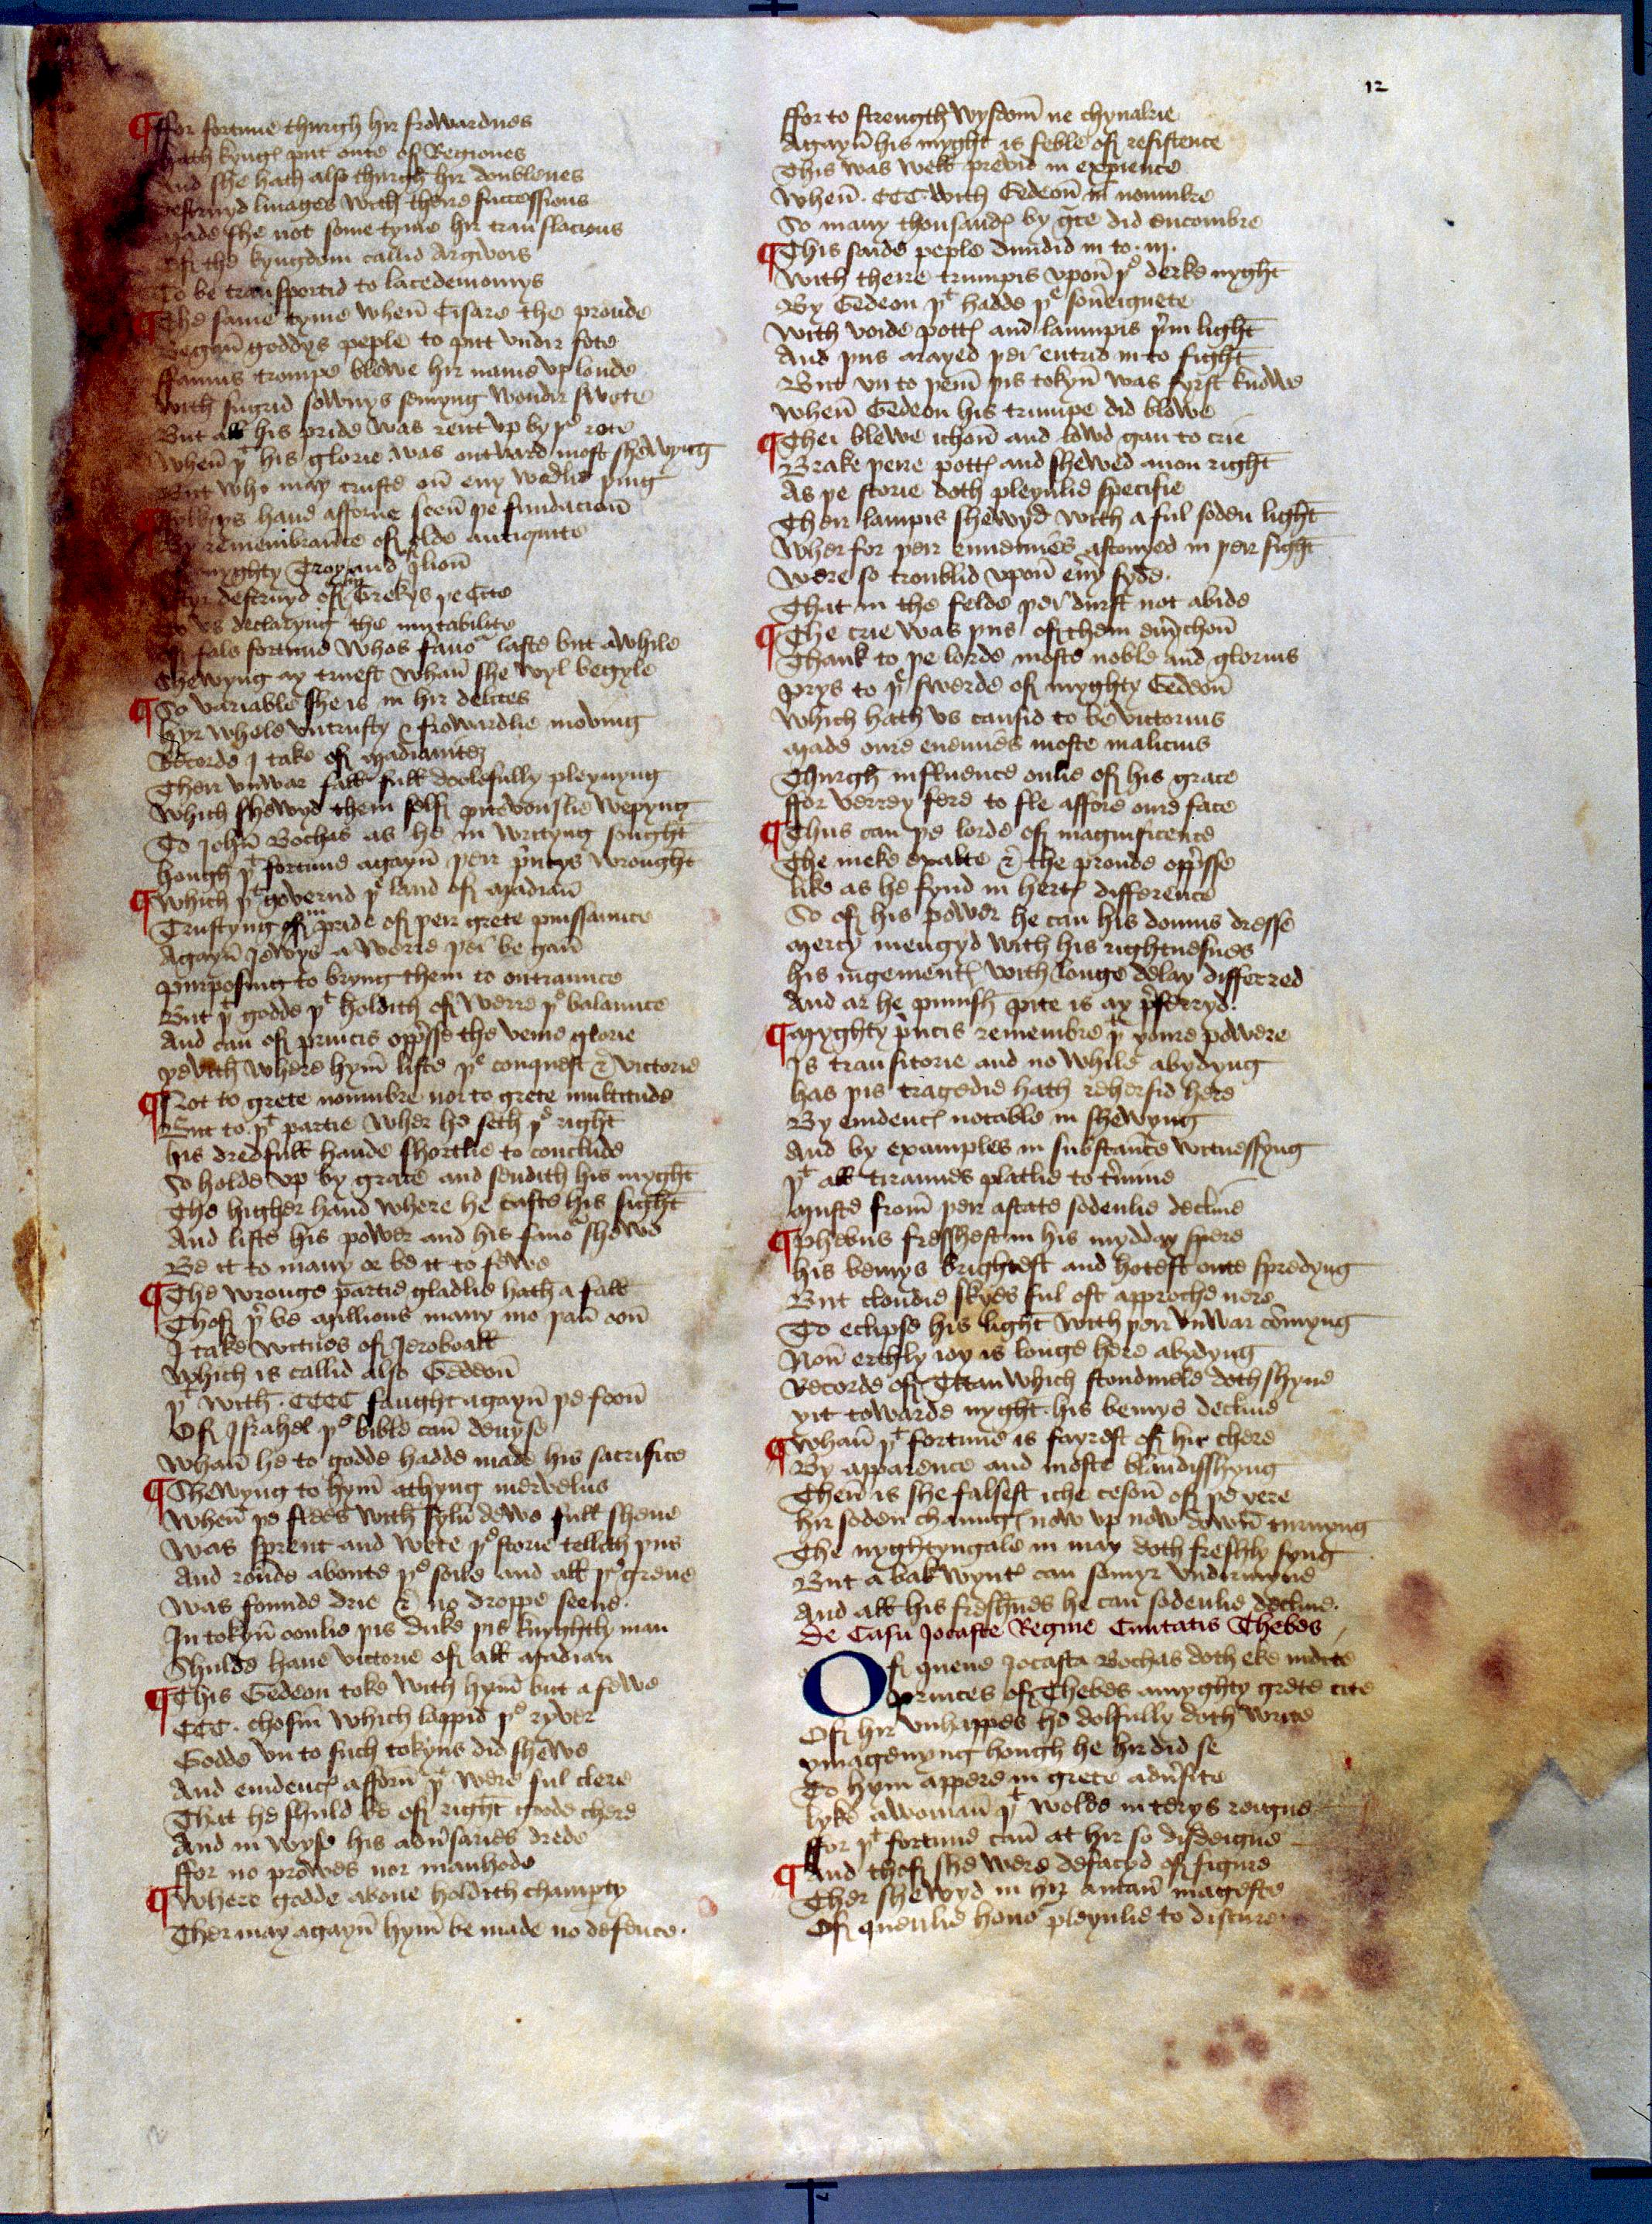 12
¶ ffor fortune thurgh hir frowardnes
hath kyngꝭ put oute of Regiones
And she hath also thurgh hir doublenes
destruyd linages with there successions
made she not some tyme hir translacions
Of the kyngdom callid Argivois
To be transportid to lacedemonys
¶ The same tyme whenn̄ Cisare the proude
Begann̄ goddys peple to put vndir fote
ffamus trompe blewe hir name vp loude
with sugrid sownys semyng wondir swote
But all his pride was rent vp by þe rote
when̄ þt his glorie was outward most shewyng
But who may truste on̄ eny wordlie þing
hand afforne seen̄ þe fundacion̄
By remembrance of olde antiquite
myghty Troy and of Ilion̄
destruyd of Grekys þe Cite
To vs declaryng the mutability
Of fals fortune whos fauor laste but awhile
Shewyng ay truest whan̄ she wyl begyle
¶ So variable she is in hir delites
hyr whele vntrusty & frowardlie moving
Recorde I take of madianitez
Their vnwar fall full doolefully pleynyng
which shewyd them self pitevouslie wepyng
To John̄ Bochas as he in writyng sought
hough þt fortune agayn̄ þeir p̄ncys wrought
¶ which þt governd þe land of madian̄
Trustyng of in pride of þeir grete puissaunce
Agayn̄ Jewys a werre þei be gan̄
purposing to bryng them to outraunce
But þt godde þt holdith of werre þe balaunce
And can of princis opp̄sse the veine glorie
yevith where hym̄ liste þe conquest & victorie
¶ Not to grete noumbre nor to grete multitude
But to þt partie wher he seth þe right
his dredfull hande shortlie to conclude
So holde vp by grace and sendith his myght
The higher hand where he caste his sight
And liste his power and his fauor shewe
Be it to many or be it to fewe
¶ The wronge partie gladlie hath a fall
Thof þr be millions many mo þan̄ oon̄
I take witnes of Jeroboall
which is callid also Gedeon̄
þt with CCCC faught agayn̄ þe foon̄
Of Israhel þe bible can̄ deuyse
whan̄ he to godde hadde made his sacrifice
¶ Shewyng to hym̄ athyng mervelus
when̄ þe flees with sylu̅ dewe full shene
was sprent and wete þe storie tellith þus
And rounde aboute þe soile and all þe grene
was founde drie & no droppe seene
In tokyn̄ oonlie þis duke þis knyghtly man
Shulde haue victorie of all madian
¶ This Gedeon toke with hym̄ but a fewe
CCC. chosin which lappid þe ryver
Godde vn to such tokyns did shewe
And euidencꝭ afforn̄ þt were ful clere
That he shuld be of right goode chere
And in wyse his adu̅saries drede
ffor no prowes nor manhode
¶ where godde aboue holdith champty
Ther may agayn̄ hym̄ be made no defence.
ffor to strength wysdom̄ ne chyualrie
Agayn̄ his myght is feble of resistence
This was well previd in expience
when̄. CCC. with Gedeon̄ in noumbre
So many thousandꝭ by gce did encombre
¶ This saide peple diuidid in to .iij.
with theire trumpis vpon̄ þe derke nyght
By Gedeon þt hadde þe sou̅eignete
with voide pottꝭ and laumpis þr in light
And þus arayed þei entrid in to fight
But vn to þem̄ þis tokyn̄ was fyrst knowe
when̄ Gedeon his trumpe did blowe
¶ Thei blewe ichon̄ and lowd gan to crie
Brake þeire pottꝭ and shewed anon right
As þe storie doth pleynlie specifie
Their lampis shewyd with a ful soden light
Wherfor þeir ennemies astonyed in þeir sight
were so troublid vpon̄ eu̅y syde.
That in the felde þei durst not abide
¶ The crie was þus of them eu̅ychon̄
Thank to þe lorde moste noble and glorius
prys to þe swerde of myghty Gedeon̄
which hath vs causid to be victorius
made oure enemies moste malicius
Thurgh influence onlie of his grace
ffor verrey fere to fle affore oure face
¶ Thus can þe lorde of magnificence
The meke exalte & the proude opp̄sse
like as he fynd in hertꝭ difference
So of his power he can his domus dresse
mercy mengyd with his rightuesnes
his iugementꝭ with longe delay differred
And ar he punish pite is ay p̄ferryd.
¶ myghty p̄ncis remembre þt youre powere
Is transitorie and no while abydyng
has þis tragedie hath rehersid here
By euidencꝭ notable in shewyng
And by examples in substance witnessyng
þt all tirauntes platlie to t̄mine
muste from̄ þeir astate sodenlie decline
¶ Phebus fresshest in his mydday spere
his bemys brightest and hotest oute spredyng
But cloudie skyes ful oft approche nere
To eclipse his light with þeir vnwar comyng
Non̄ erthly ioy is longe here abydyng
Recorde of Titan which stondmele doth shyne
yit towarde nyght his bemys decline
¶ whan̄ þt fortune is fayrest of hir chere
By apparence and moste blandisshyng
Then̄ is she falsest iche ceson̄ of þe yere
hir soden chaungꝭ now vp now down̄ turnyng
The nyghtyngale in may doth freshly syng
But a bak wyntꝭ can somyr vndirmyne
And all his freshnes he can̄ sodenlie decline.
De Casu Jocaste Regine Ciuitatis Thebes
Of quene Jocasta Bochas doth eke indite
princes of Thebes amyghty grete cite
Of hir vnhappes he dolfully doth write
ymagenyng hough he hir did se
To hym appere in grete adu̅site
lyke a woman̄ þt welde in terys reigne
ffor þt fortune can̄ at hir so disdeigne
¶ And thof she were defacyd of figure
Ther shewyd in hir a magiste
Of quenlie honor pleynlie to discure